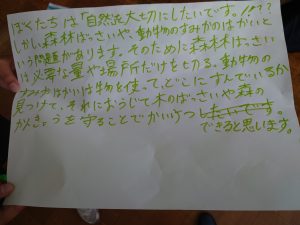 ぼくたちは「自然を大切にしたいです。!!???
しかし、森林ばっさいや、動物のすみかのはかいと
いう問題があります。そのために森林ばっさい
は必要な量や場所だけをを切る。動物の
はかいは物を使って、どこにすんでいるか
見つけて、それにおうじて木のばっさいや森の
かんきょうを守ることでかいけつしたいです。
できると思います。